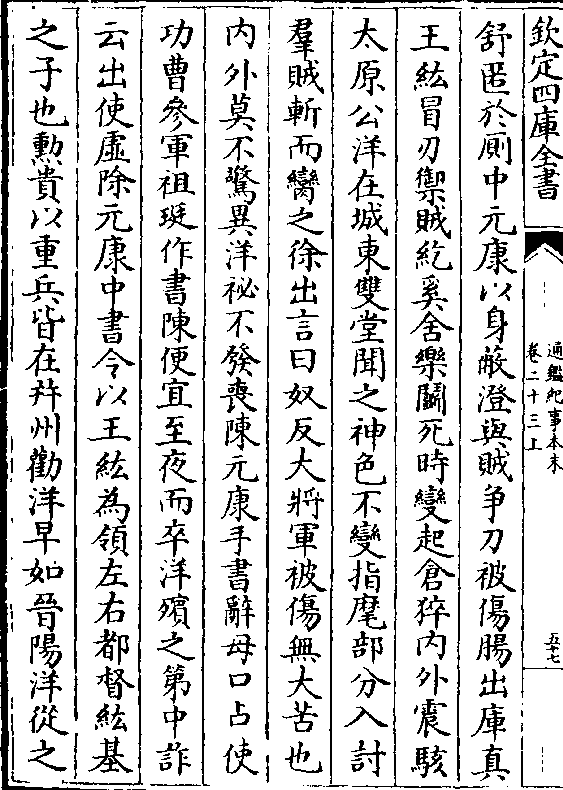 欽定四庫全書
通鑑紀事本末
卷二十三上
五十七
舒匿於厠中元康以身蔽澄與賊爭刀被傷腸出庫真
王紘冒刃禦賊紇奚舍樂鬭死時變起倉猝内外震駭
太原公洋在城東雙堂聞之神色不變指麾部分入討
羣賊斬而臠之徐出言曰奴反大將軍被傷無大苦也
内外莫不驚異洋祕不發喪陳元康手書辭母口占使
功曹參軍祖珽作書陳便宜至夜而卒洋殯之第中詐
云出使虛除元康中書令以王紘為領左右都督紘基
之子也勲貴以重兵皆在并州勸洋早如晉陽洋從之